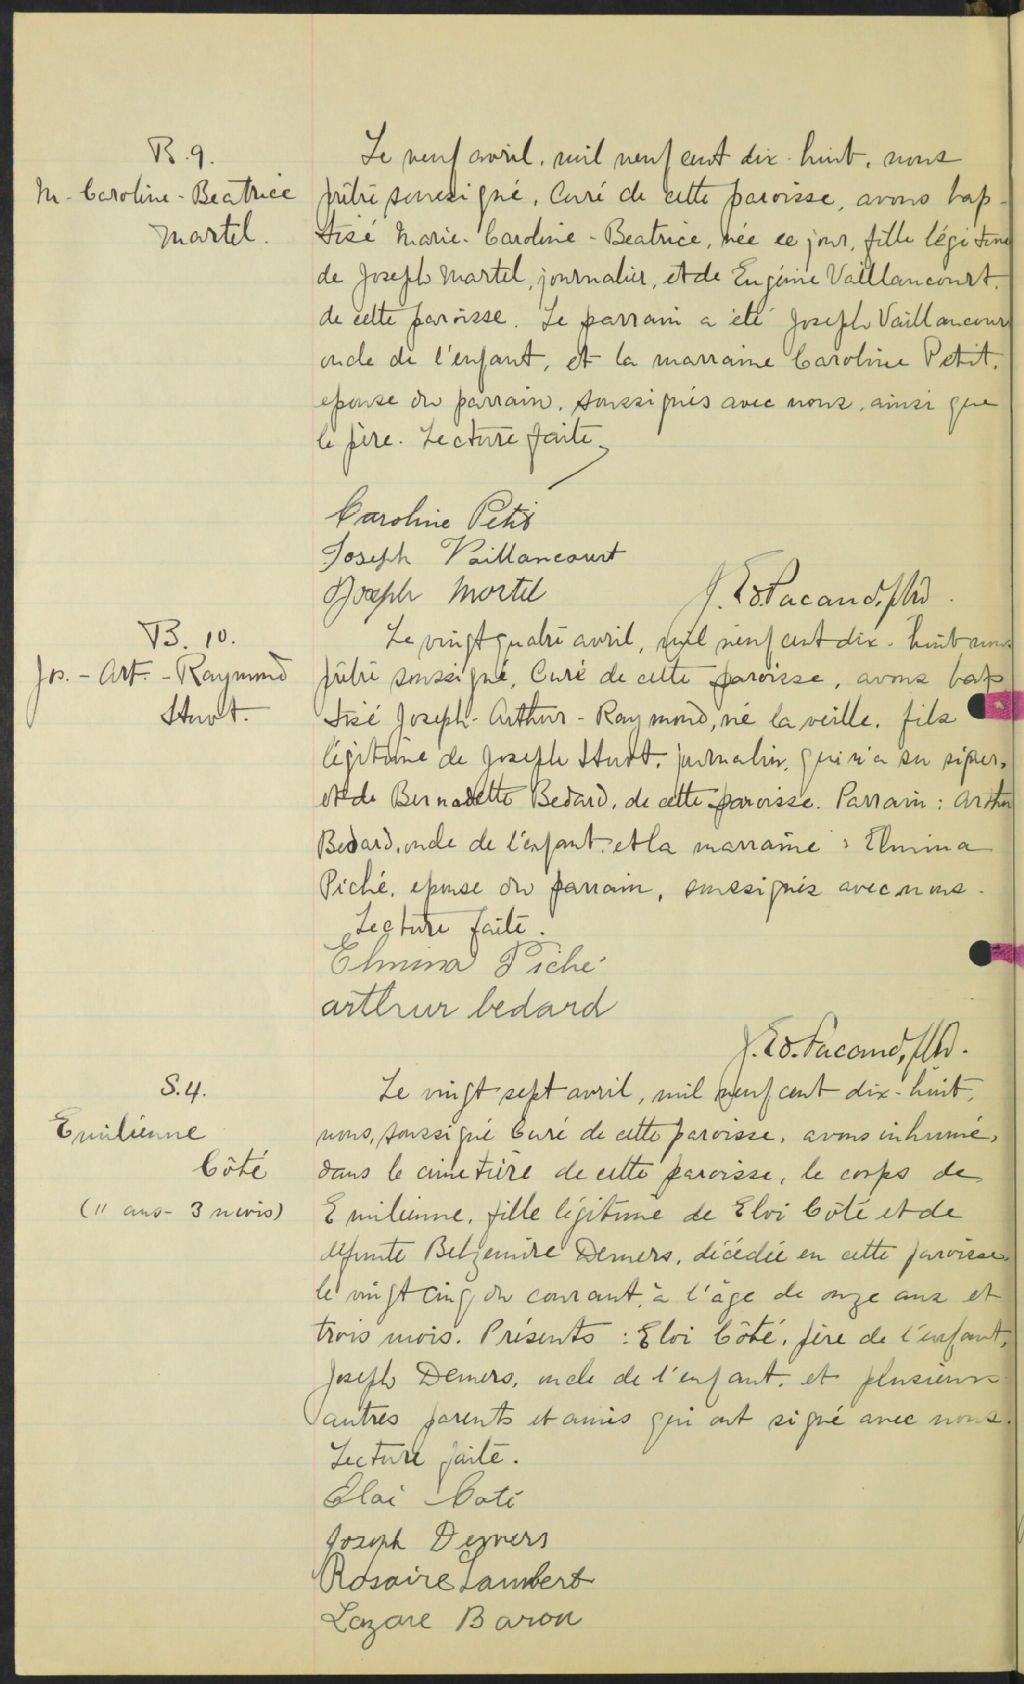 B. 9.
M.-Caroline-Beatrice
Martel.
Le neuf avril, mil neuf cent dix-huit, nous
prêtre soussigné, Curé de cette paroisse, avons bap-
tisé Marie-Caroline-Beatrice, née ce jour, fille légitime
de Joseph Martel, journalier, et de Eugénie Vaillancourt,
de cette paroisse. Le parrain a été Joseph Vaillancour
oncle de l'enfant, et la marraine Caroline Petit,
epouse du parrain, soussignés avec nous, ainsi que
le père. Lecture faite.
Caroline Petit
Joseph Vaillancourt
Joseph Martel
J. Ed. Pacaud, ptre.
B. 10.
Jos.-Art.-Raymond
Huot.
Le vingt quatre avril, mil neuf cent dix-huit nous
prêtre soussigné, Curé de cette paroisse, avons bap
tisé Joseph-Arthur-Raymond, né la veille, fils
légitime de Joseph Huot, journalier, qui n'a su signer,
et de Bernadette Bedard, de cette paroisse. Parrain: Arthur
Bedard, oncle de l'enfant, et la marraine: Elmina
Piché, epouse du parrain, soussignés avec nous.
Lecture faite.
Elmina Piché
arthur bedard
J. Ed. Pacaud, ptre.
S. 4.
Emilienne
Côté
(11 ans - 3 mois)
Le vingt sept avril, mil neuf cent dix-huit,
nous, soussigné Curé de cette paroisse, avons inhumé,
dans le cimetière de cette paroisse, le corps de
Emilienne, fille légitime de Eloi Côté et de
défunte Belzemire Demers, décédée en cette paroisse,
le vingt cinq du courant, à l'âge de onze ans et
trois mois. Présents: Eloi Côté, père de l'enfant,
Joseph Demers, oncle de l'enfant, et plusieurs
autres parents et amis qui ont signé avec nous.
Lecture faite.
Eloi Coté
Joseph Demers
Rosaire Lambert
Lazare Baron